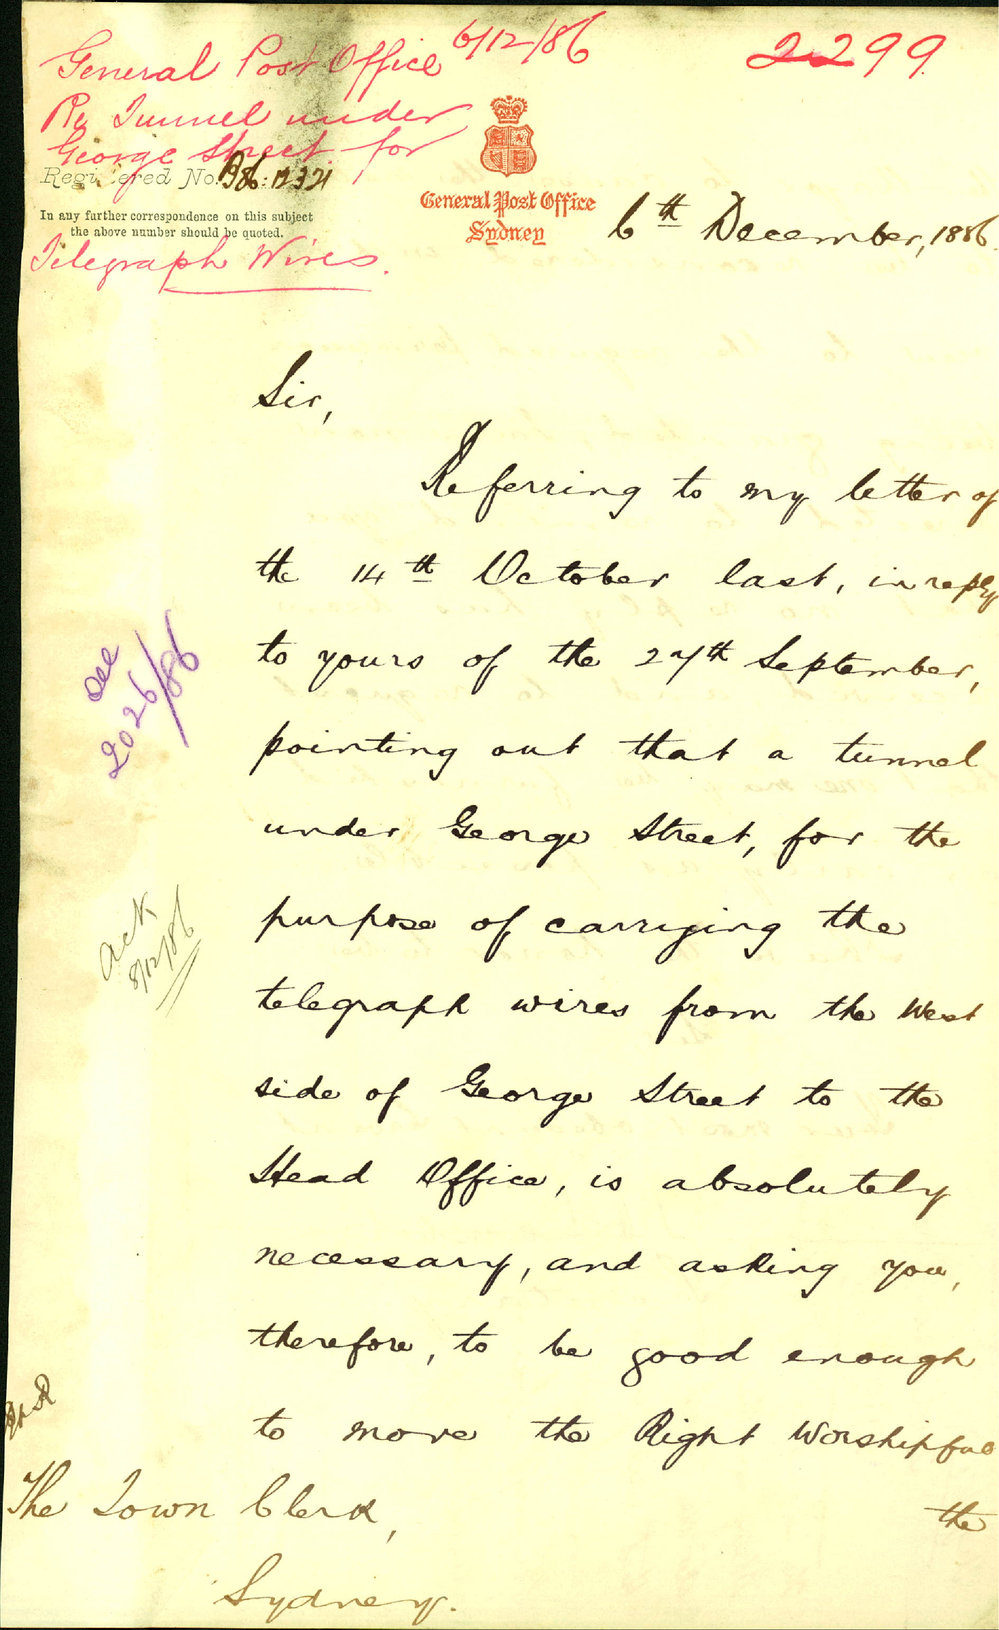 General Post Office 6/12/86
2299
Re Tunnel under
George Street for
Registered No. B86:12321
In any further correspondence on this subject
the above number should be quoted.
Telegraph Wires.
General Post Office
Sydney
6th December, 1886
Sir,
Referring to my letter of
the 14th October last, in reply
to yours of the 27th September,
pointing out that a tunnel
under George Street, for the
purpose of carrying the
telegraph wires from the West
side of George Street to the
Head Office, is absolutely
necessary, and asking you,
therefore, to be good enough
to move the Right Worshipful
the
The Town Clerk,
Sydney.
See
2026/86
Ack
8/12/86